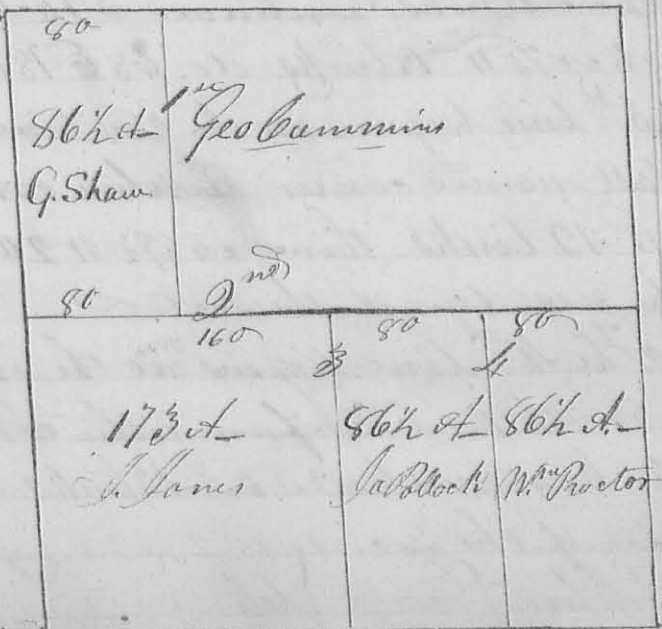 80
86½ A
G. Shaw
80
1st
Geo Cummins
2nd
160
173 A
J. Jones
3
80
86½ A
Ja Pollock
4
80
86½ A.
Wm Proctor